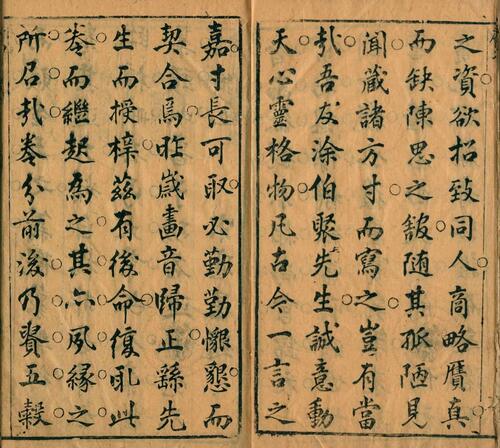 之資欲招致同人商略贋真
而缺陳思之随其孤陋見
聞蔵諸方寸而寫之豈有當
哉吾友涂伯聚先生誠意動
天心靈格物凡古今一言之
嘉寸長可取必勤勤懇懇而
契合焉昨歲畫音歸正繇先
生而授梓茲有後命復此
卷而繼起為之其亦夙緣之
所召哉卷分前後乃賚五穀